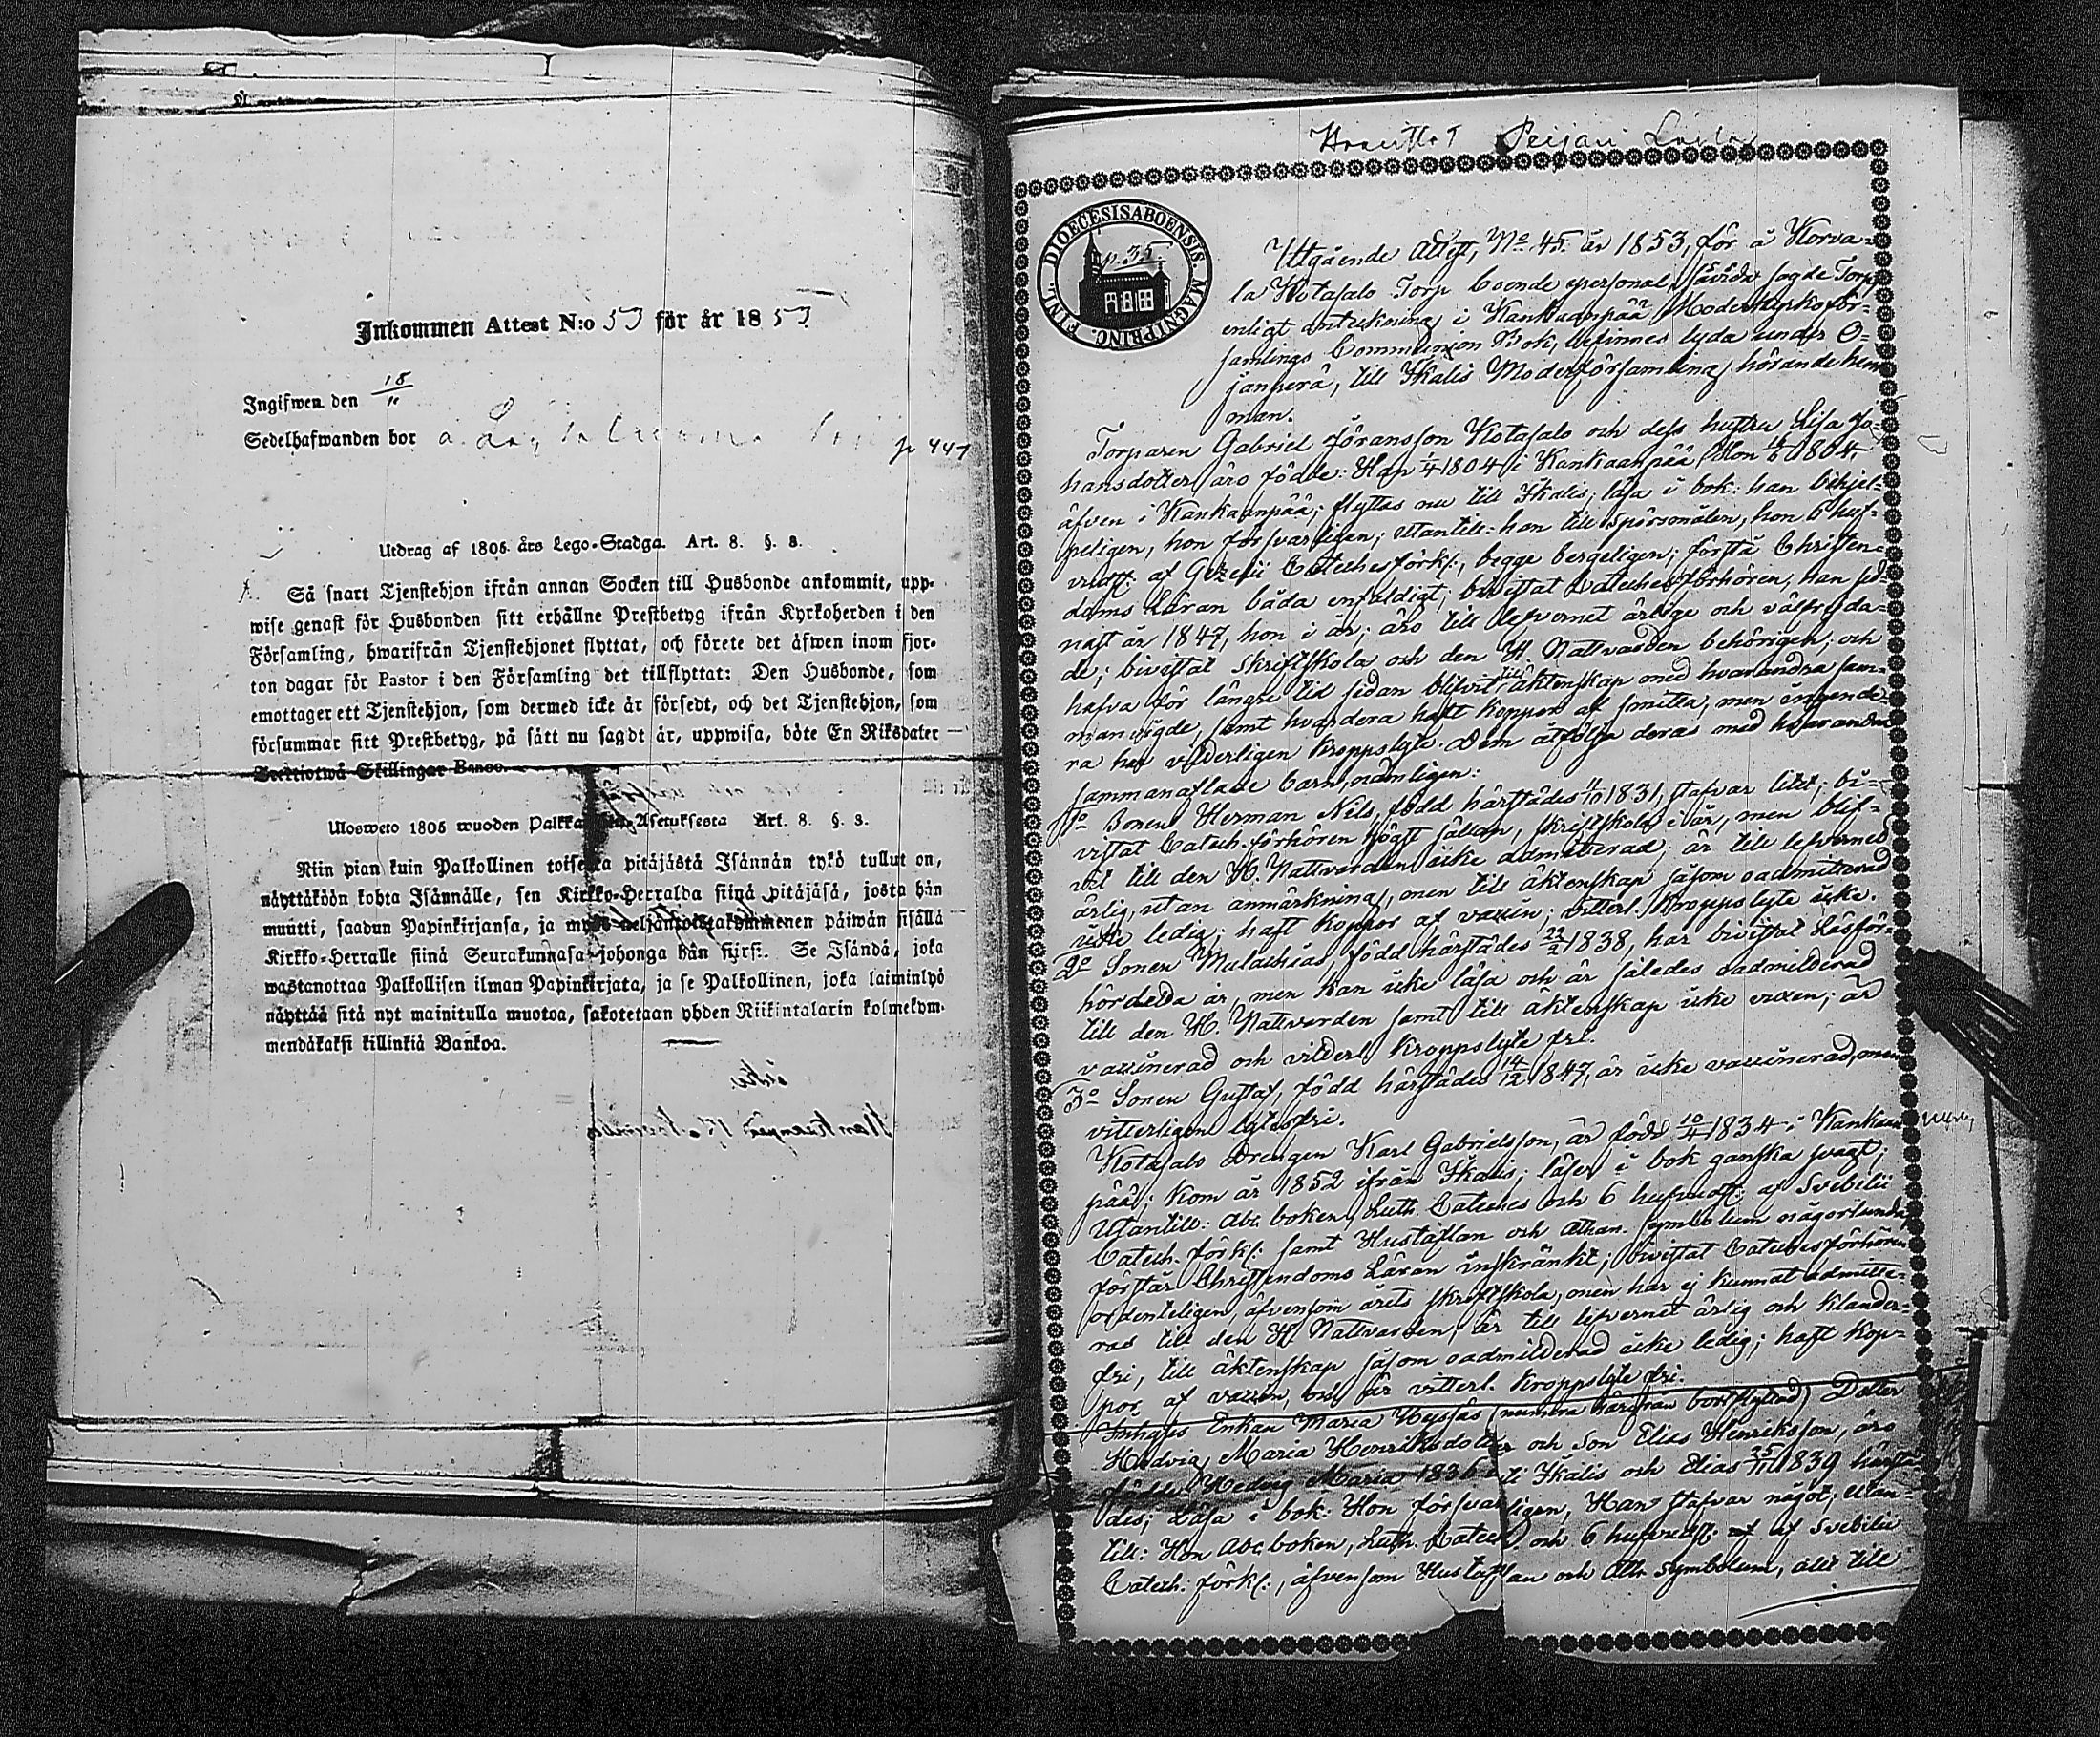 Inkommen Attest N:o 53 för år 1853
Ingifwen den 18/11
Sedelhafwanden bor å
p 447
Utdrag af 1805 års Lego-Stadga. Art. 8. §. 8.
Så snart Tjenstehjon ifrån annan Socken till Husbonde ankommit, upp-
wise genast för Husbonden sitt erhållne Prestbetyg ifrån Kyrkoherden i den
Församling, hwarifrån Tjenstehjonet flyttat, och förete det äfwen inom fjor-
ton dagar för Pastor i den Församling det tillflyttat: Den Husbonde, som
emottager ett Tjenstehjon, som dermed icke är försedt, och det Tjenstehjon, som
försummar sitt Prestbetyg, på sätt nu sagdt är, uppwisa, böte En Riksdaler
Trettiotwå Skillingar Banco.
Ulosweto 1805 wuoden Asetuksesta Art. 8. §. 8.
Niin pian kuin Palkollinen toisesta pitäjästä Isännän tykö tullut on,
näyttäköön kohta Isännälle, sen Kirkko-Herralda siinä pitäjäsä, josta hän
muutti, saadun Papinkirjansa, ja myös neljäntoistakymmenen päiwän sisällä
Kirkko-Herralle siinä Seurakunnasa johonga hän siirsi. Se Isändä, joka
wastanottaa Palkollisen ilman Papinkirjata, ja se Palkollinen, joka laiminlyö
näyttää sitä nyt mainitulla muotoa, sakotetaan yhden Riikintalarin kolmekym-
mendäkaksi killinkiä Bankoa.
Peijari
DIOECESIS ABOENSIS. MAGNI PRINC. FINL.
p. 35.
Utgående Attest, No 45 år 1853, för å Korva-
la Kotasalo Torp boende personal, såvida sagde Torp
enligt anteckning i Kankaanpää Moderkyrkoför-
samlings Communion Bok, befinnes lyda under O-
janperä, till Ikalis Moderförsamling hörande hem-
man.
Torparen Gabriel Göransson Kotasalo och dess hustru Lisa Jo-
hansdotter äro födde: Han 1/4 1804 i Kankaanpää, Hon 1804
äfven i Kankaanpää; flyttas nu till Ikalis; läsa i bok: han behjel-
peligen, hon försvarligen; utantill: han till spörsmålen, hon 6 huf-
vudst. af Gezelii Cateches förkl:, begge bergeligen; förstå Christen-
doms Läran båda enfaldigt; bivistat Catechesförhören, han sed-
nast år 1847, hon i år; äro till lefvernet ärlige och välfrejda-
de; bivistat Skriftskola och den H. Nattvarden behörigen; och
hafva för längre tid sedan blifvit till äktenskap med hvarandra sam-
manvigde, samt hvardera haft koppor af smitta, men ingende-
ra har vitterligen kroppslyte. Dem åtfölja deras med hvarandra
sammanaflade barn, nämligen:
1o Sonen Herman Nils, född härstädes 11/10 1831, stafvar litet; bi-
vistat Catech. förhören högst sällan, skriftskola i år, men blif-
vit till den H. Nattvarden icke admitterad; är till lefvernet
ärlig, utan anmärkning, men till äktenskap såsom oadmitterad
icke ledig; haft koppor af vaccin; vitterl. kroppslyte icke.
2o Sonen Malachias, född härstädes 22/2 1838, har bivistat Läsför-
hör detta år, men kan icke läsa och är således oadmitterad
till den H. Nattvarden samt till äktenskap icke vuxen; är
vaccinerad och vitterl. kroppslyte fri.
3o Sonen Gustaf, född härstädes 14/12 1847, är icke vaccinerad, men
vitterligen lytesfri.
Kotasalo Drengen Karl Gabrielsson, är född 10/4 1834 i Kankaan-
pää; kom år 1852 ifrån Ikalis; läser i bok ganska svagt;
Utantill: Abc boken, Luth. Cateches och 6 hufvudst: af Svebilii
Catech. förkl: samt Hustaflan och Athan. symbolum någorlunda
förstår Christendoms Läran inskränkt; bivistat Catechesförhören
ordenteligen, äfvensom årets skriftskola, men har ej kunnat admitte-
ras till den H. Nattvarden; är till lefvernet ärlig och klander-
fri, till äktenskap såsom oadmitterad icke ledig; haft kop-
por af vaccin, och är vitterl. kroppslyte fri.
Inhyses Enkan Maria (numera härifrån bortflyttad) Dotter
Hedvig Maria Henriksdotter och Son Elias Henriksson, äro
födde, Hedvig Maria 1836 i Ikalis och Elias 25/11 1839 härstä-
des; Läsa i bok: Hon försvarligen, Han stafvar något; utan-
till: Hon Abc boken, Luth. Catech. och 6 hufvudst: af Svebilii
Catech: förkl:, äfvensom Hustaflan och Ath. symbolum, allt till